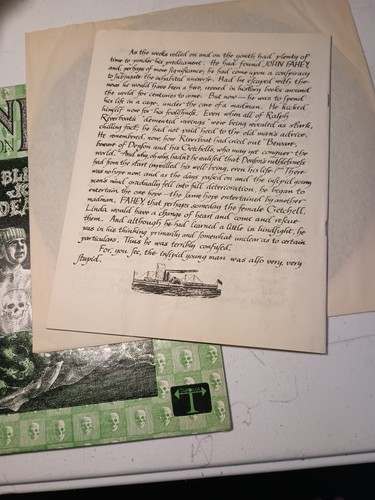 As the weeks rolled on and on the youth had plenty of
time to ponder his predicament. He had found JOHN FAHEY,
and, perhaps of more significance, he had come upon a conspiracy
to subjugate the inhabited universe. Had he escaped with the
news he would have been a hero, revered in history books around
the world for centuries to come. But now — he was to spend
his life in a cage, under the care of a madman. He kicked
himself now for his foolishness. Even when all of Ralph
Riverboat's "demented ravings" were being revealed as stark,
chilling fact, he had not paid heed to the old man's advice.
He remembered, now, how Riverboat had cried out "Beware,
beware of Deason and his Getchells, who may yet conquer the
world." And why, oh why, hadn't he realized that Deason's ruthlessness
had from the start imperiled his well-being, even his life? There
was no hope now, and as the days passed on and the insipid young
man's mind gradually fell into full deterioration, he began to
entertain the one hope — the same hope entertained by another
madman, FAHEY, that perhaps someday the female Getchell,
Linda would have a change of heart and come and rescue
them. And although he had learned a little in hindsight, he
was in his thinking primarily and somewhat unclear as to certain
particulars. Thus he was terribly confused.
For, you see, the insipid young man was also very, very
stupid.
N
ON
BL
JO
DEA
S
T